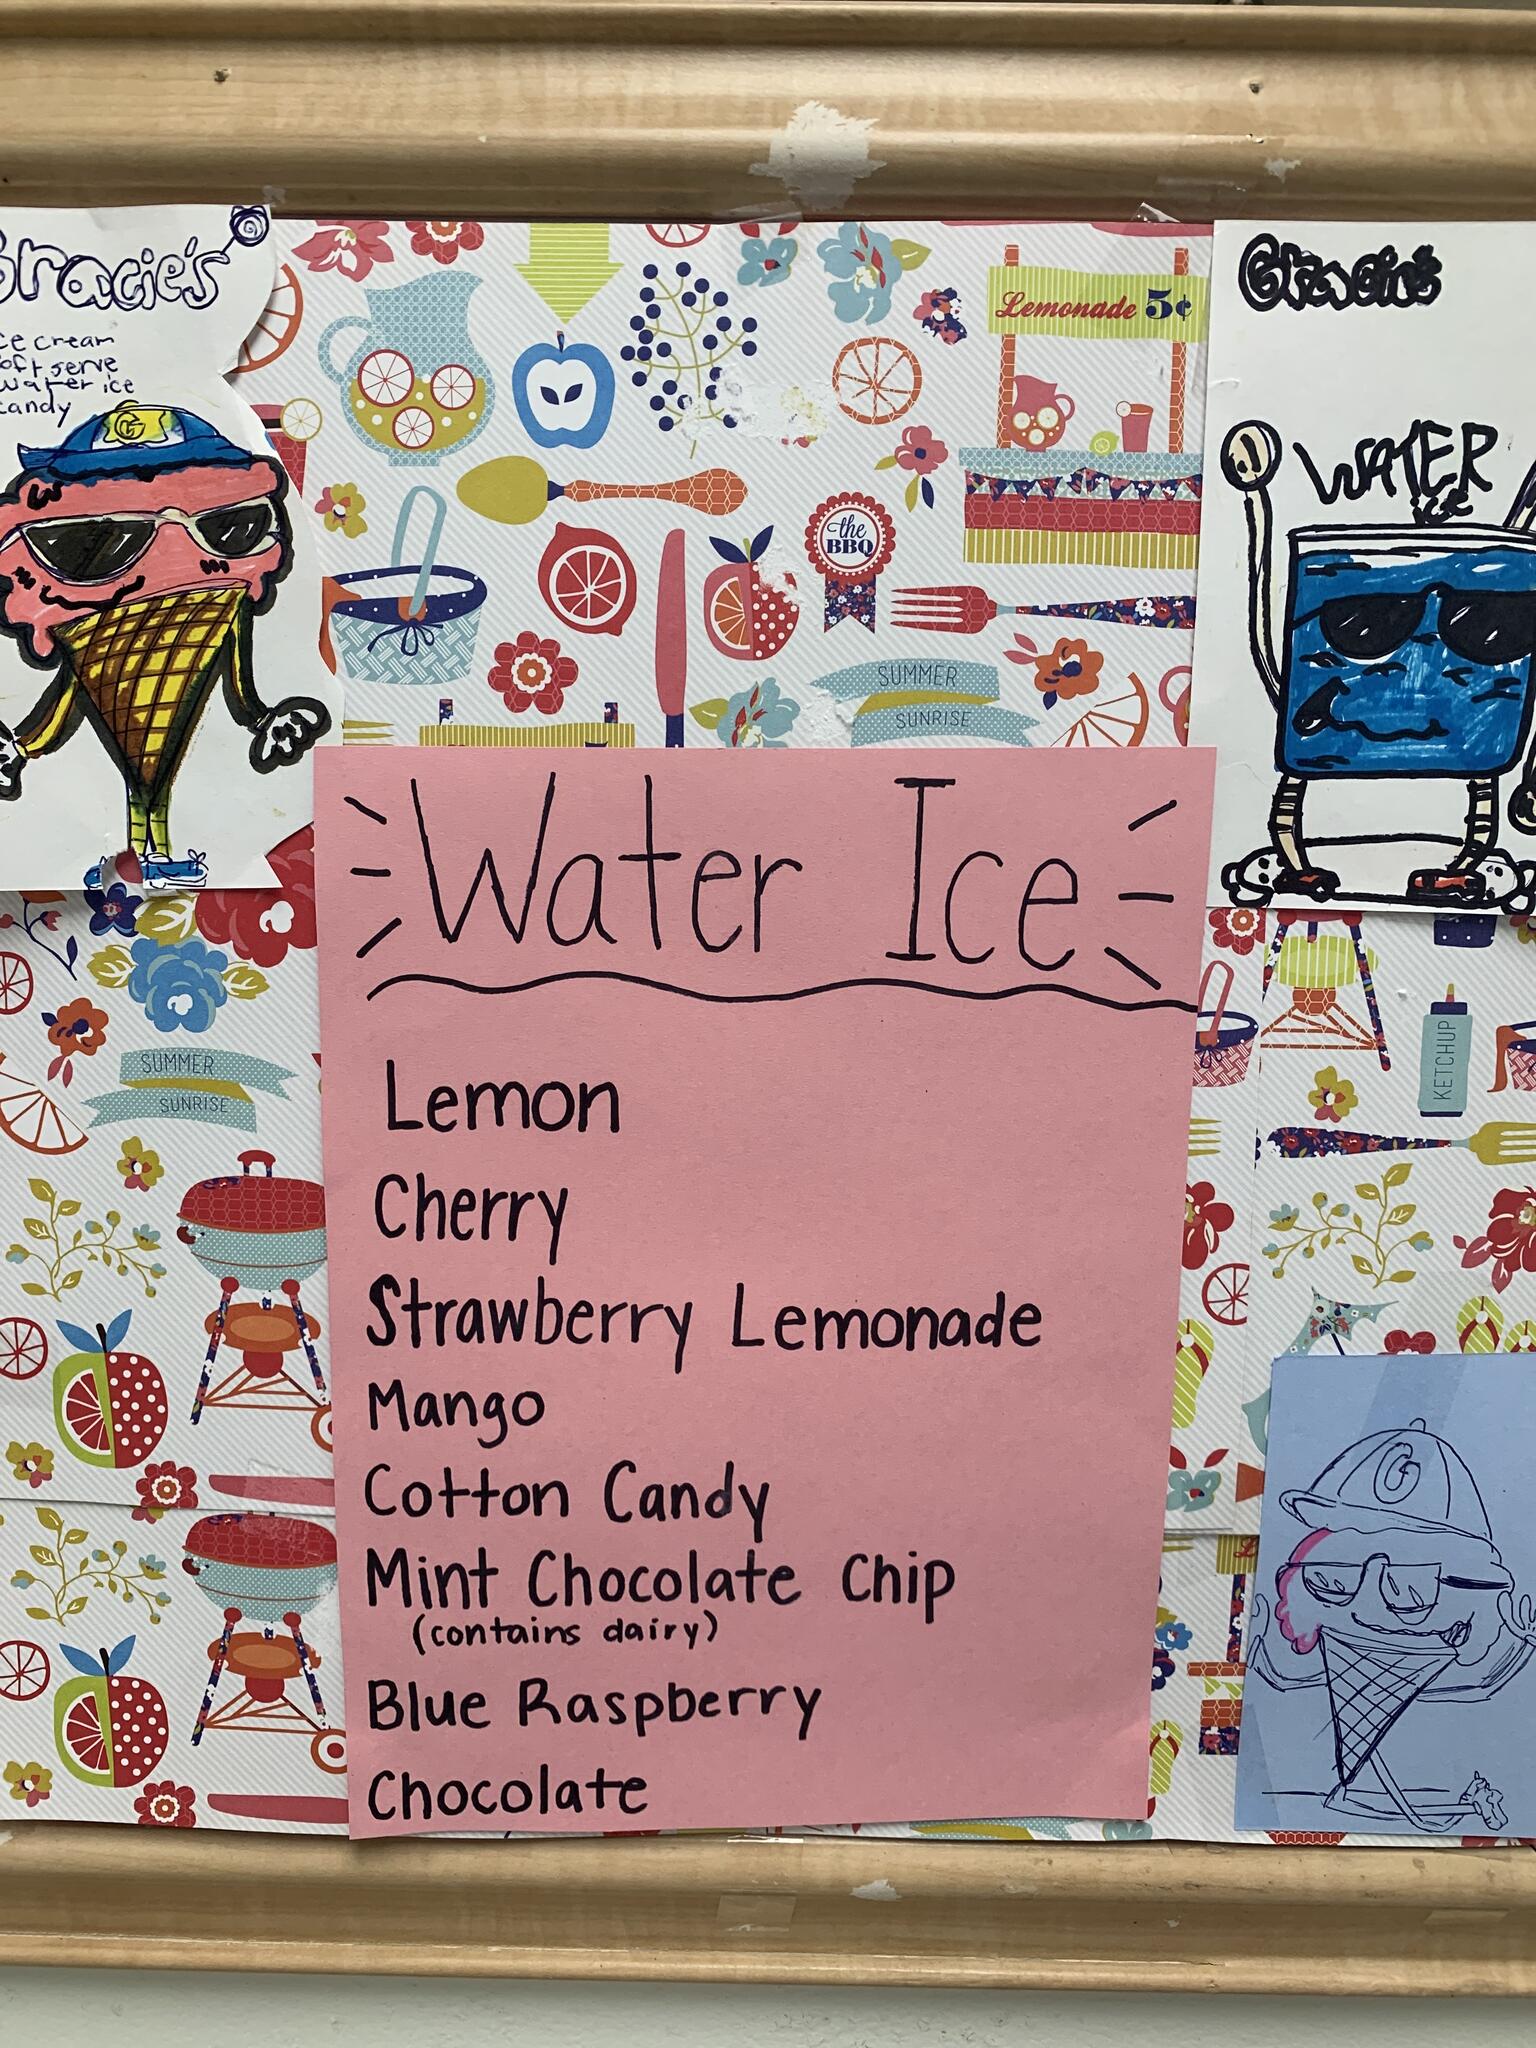 Gracie's
ice cream
soft serve
water ice
candy
G
Lemonade 5¢
the
BBQ
SUMMER
SUNRISE
Gracie's
WATER
ice
Water Ice
Lemon
Cherry
Strawberry Lemonade
Mango
Cotton Candy
Mint Chocolate Chip
(contains dairy)
Blue Raspberry
Chocolate
SUMMER
SUNRISE
KETCHUP
G